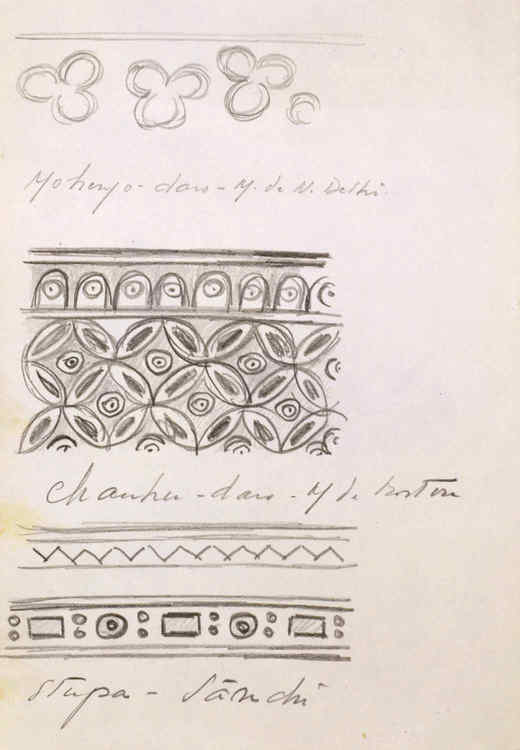 Mohenjo-daro - M. de N. Delhi.
Chanhu-daro - M de Boston
Stupa - Sānchi